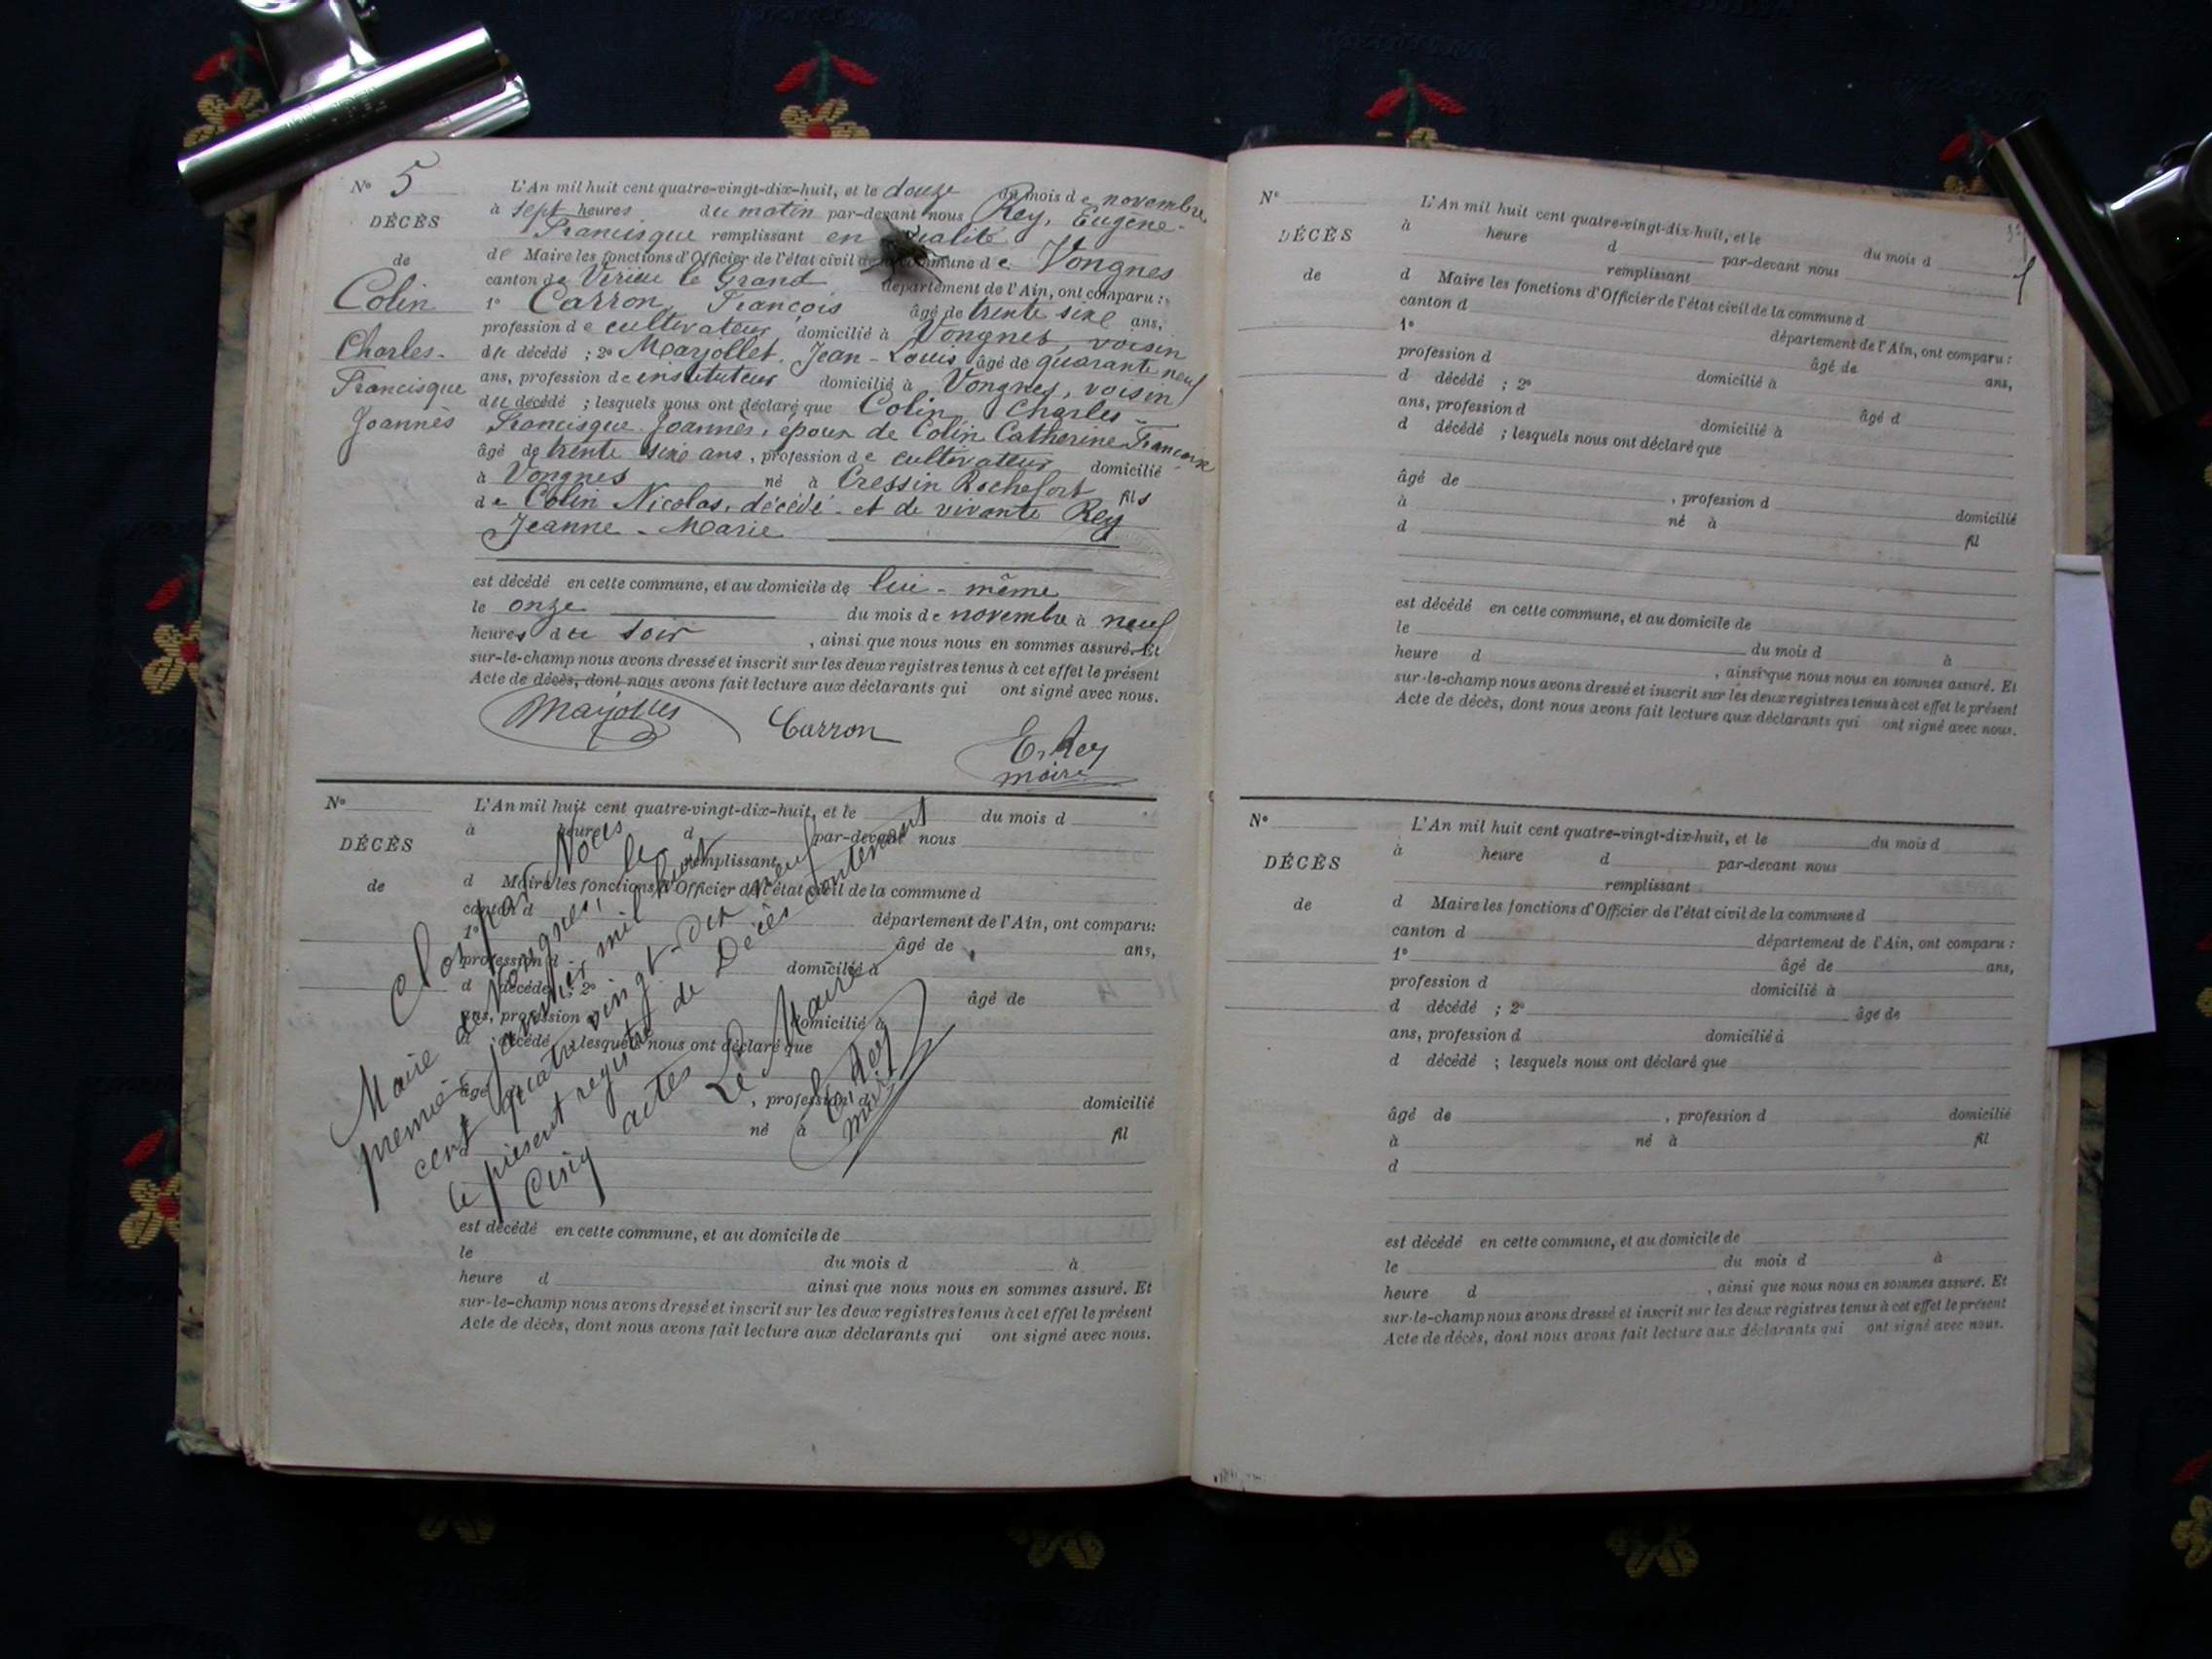 N° 5
DÉCÈS
de
Colin
Charles-
Francisque
Joannès
L'An mil huit cent quatre-vingt-dix-huit, et le douze du mois de novembre
à sept heures du matin par-devant nous Rey, Eugène-
Francisque remplissant en qualité
de Maire les fonctions d'Officier de l'état civil de la commune de Vongnes
canton de Virieu le Grand département de l'Ain, ont comparu :
1° Carron, François âgé de trente sixe ans,
profession de cultivateur domicilié à Vongnes, voisin
du décédé ; 2° Mayollet, Jean-Louis, âgé de quarante neuf
ans, profession de instituteur domicilié à Vongnes, voisin
du décédé ; lesquels nous ont déclaré que Colin, Charles-
Francisque-Joannès, époux de Colin Catherine Françoise
âgé de trente sixe ans, profession de cultivateur domicilié
à Vongnes né à Cressin Rochefort fils
de Colin Nicolas, décédé - et de vivante Rey
Jeanne-Marie
est décédé en cette commune, et au domicile de lui-même
le onze du mois de novembre à neuf
heures du soir , ainsi que nous nous en sommes assuré. Et
sur-le-champ nous avons dressé et inscrit sur les deux registres tenus à cet effet le présent
Acte de décès, dont nous avons fait lecture aux déclarants qui ont signé avec nous.
Mayollet Carron E. Rey
maire
N°
DÉCÈS
de
L'An mil huit cent quatre-vingt-dix-huit, et le du mois d
à heure d par-devant nous
remplissant
d Maire les fonctions d'Officier de l'état civil de la commune d
canton d
département de l'Ain, ont comparu:
1° âgé de ans,
profession d domicilié à
d décédé ; 2° âgé de
ans, profession domicilié à
d décédé ; lesquels nous ont déclaré que
âgé de , profession d domicilié
né à fil
est décédé en cette commune, et au domicile de
le du mois d à
heure d ainsi que nous nous en sommes assuré. Et
sur-le-champ nous avons dressé et inscrit sur les deux registres tenus à cet effet le présent
Acte de décès, dont nous avons fait lecture aux déclarants qui ont signé avec nous.
Clos par Nous
Maire de Vongnes, le
premier janvier mil huit
cent quatre vingt-dix neuf
le présent registre de Décès contenant
Cinq actes Le Maire
E. Rey
maire
N°
DÉCÈS
de
L'An mil huit cent quatre-vingt-dix-huit, et le du mois d
à heure d par-devant nous
remplissant
d Maire les fonctions d'Officier de l'état civil de la commune d
canton d
département de l'Ain, ont comparu :
1° âgé de ans,
profession d domicilié à
d décédé ; 2° âgé d
ans, profession d domicilié à
d décédé ; lesquels nous ont déclaré que
âgé de , profession d domicilié
à né à fil
d
est décédé en cette commune, et au domicile de
le du mois d à
heure d , ainsi que nous nous en sommes assuré. Et
sur-le-champ nous avons dressé et inscrit sur les deux registres tenus à cet effet le présent
Acte de décès, dont nous avons fait lecture aux déclarants qui ont signé avec nous.
N°
DÉCÈS
de
L'An mil huit cent quatre-vingt-dix-huit, et le du mois d
à heure d par-devant nous
remplissant
d Maire les fonctions d'Officier de l'état civil de la commune d
canton d département de l'Ain, ont comparu :
1° âgé de ans,
profession d domicilié à
d décédé ; 2° âgé de
ans, profession d domicilié à
d décédé ; lesquels nous ont déclaré que
âgé de , profession d domicilié
à né à fil
d
est décédé en cette commune, et au domicile de
le du mois d à
heure d , ainsi que nous nous en sommes assuré. Et
sur-le-champ nous avons dressé et inscrit sur les deux registres tenus à cet effet le présent
Acte de décès, dont nous avons fait lecture aux déclarants qui ont signé avec nous.